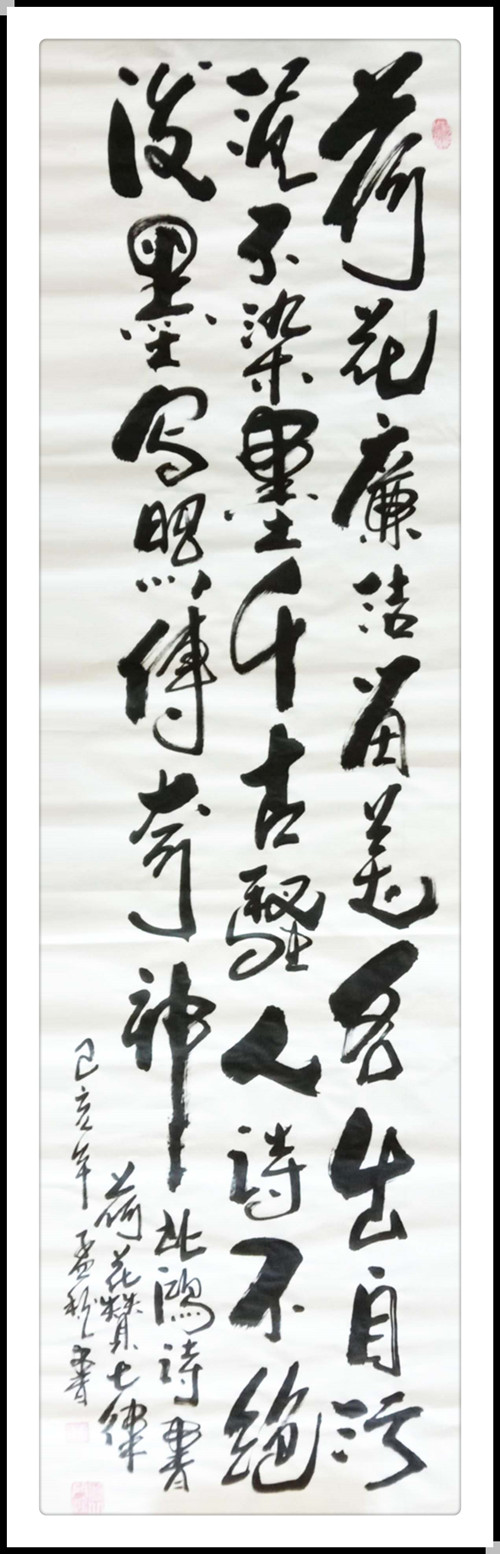 荷花廉洁留美名出自污
泥不染塵千古騷人詩不絕
泼墨写照傳奇神
北鴻詩書
荷花贊七律
己亥年孟秋書